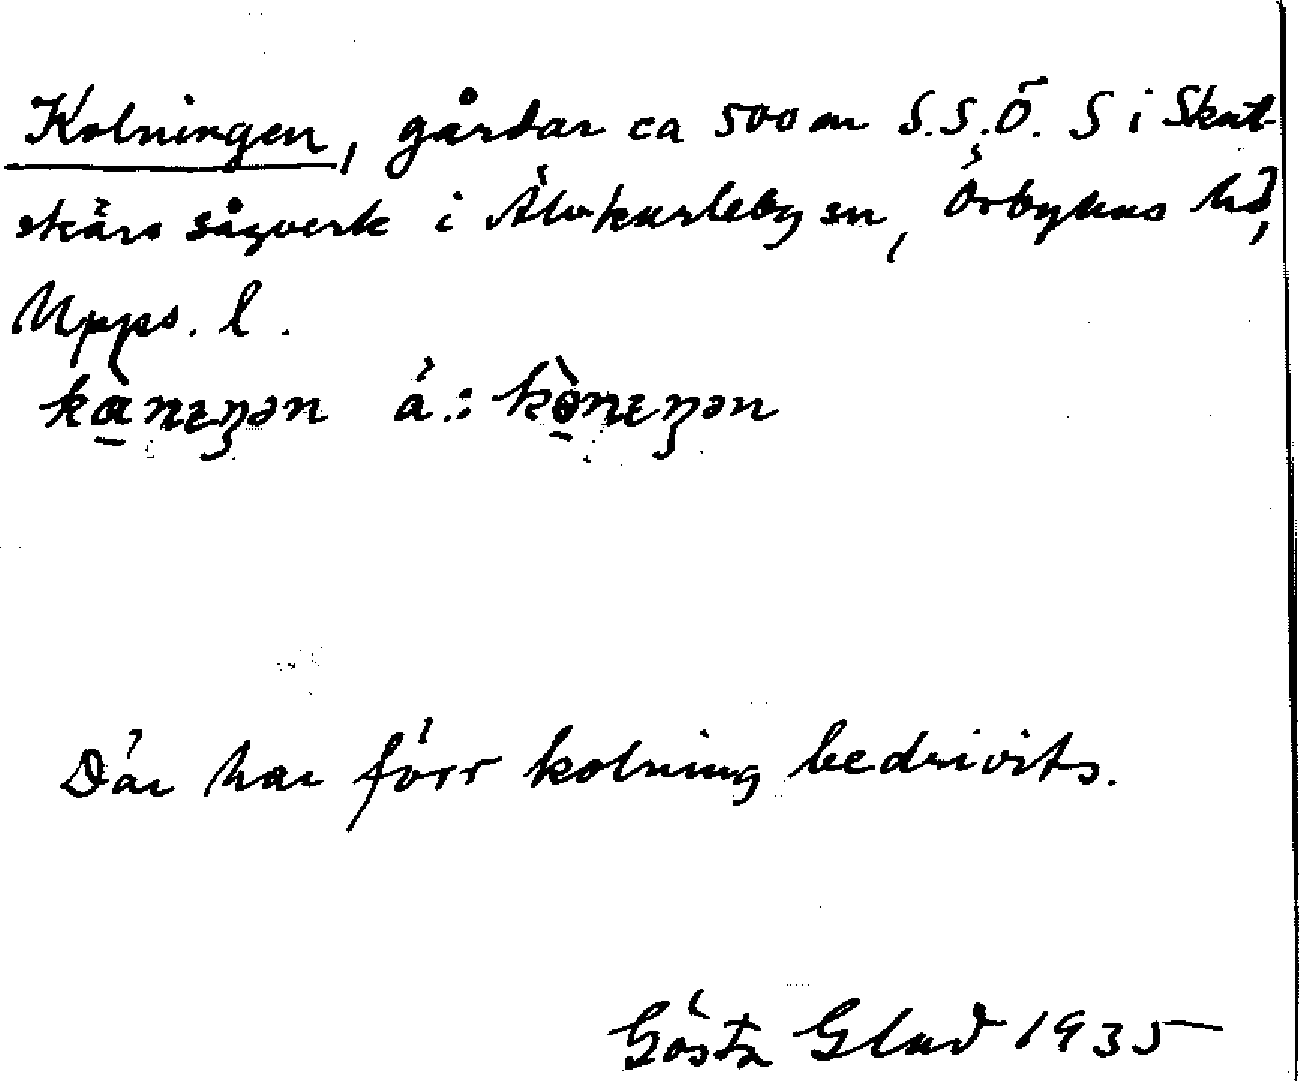 Kolningen, gårdar ca 500 m S.S.Ö. S i Skut-
skärs sågverk i Älvkarleby sn, Örbyhus hd,
Upps. l.
kɑ̠̀nɪŋən ä.: kò̠nɪŋən
Där har förr kolning bedrivits.
Gösta Glad 1935